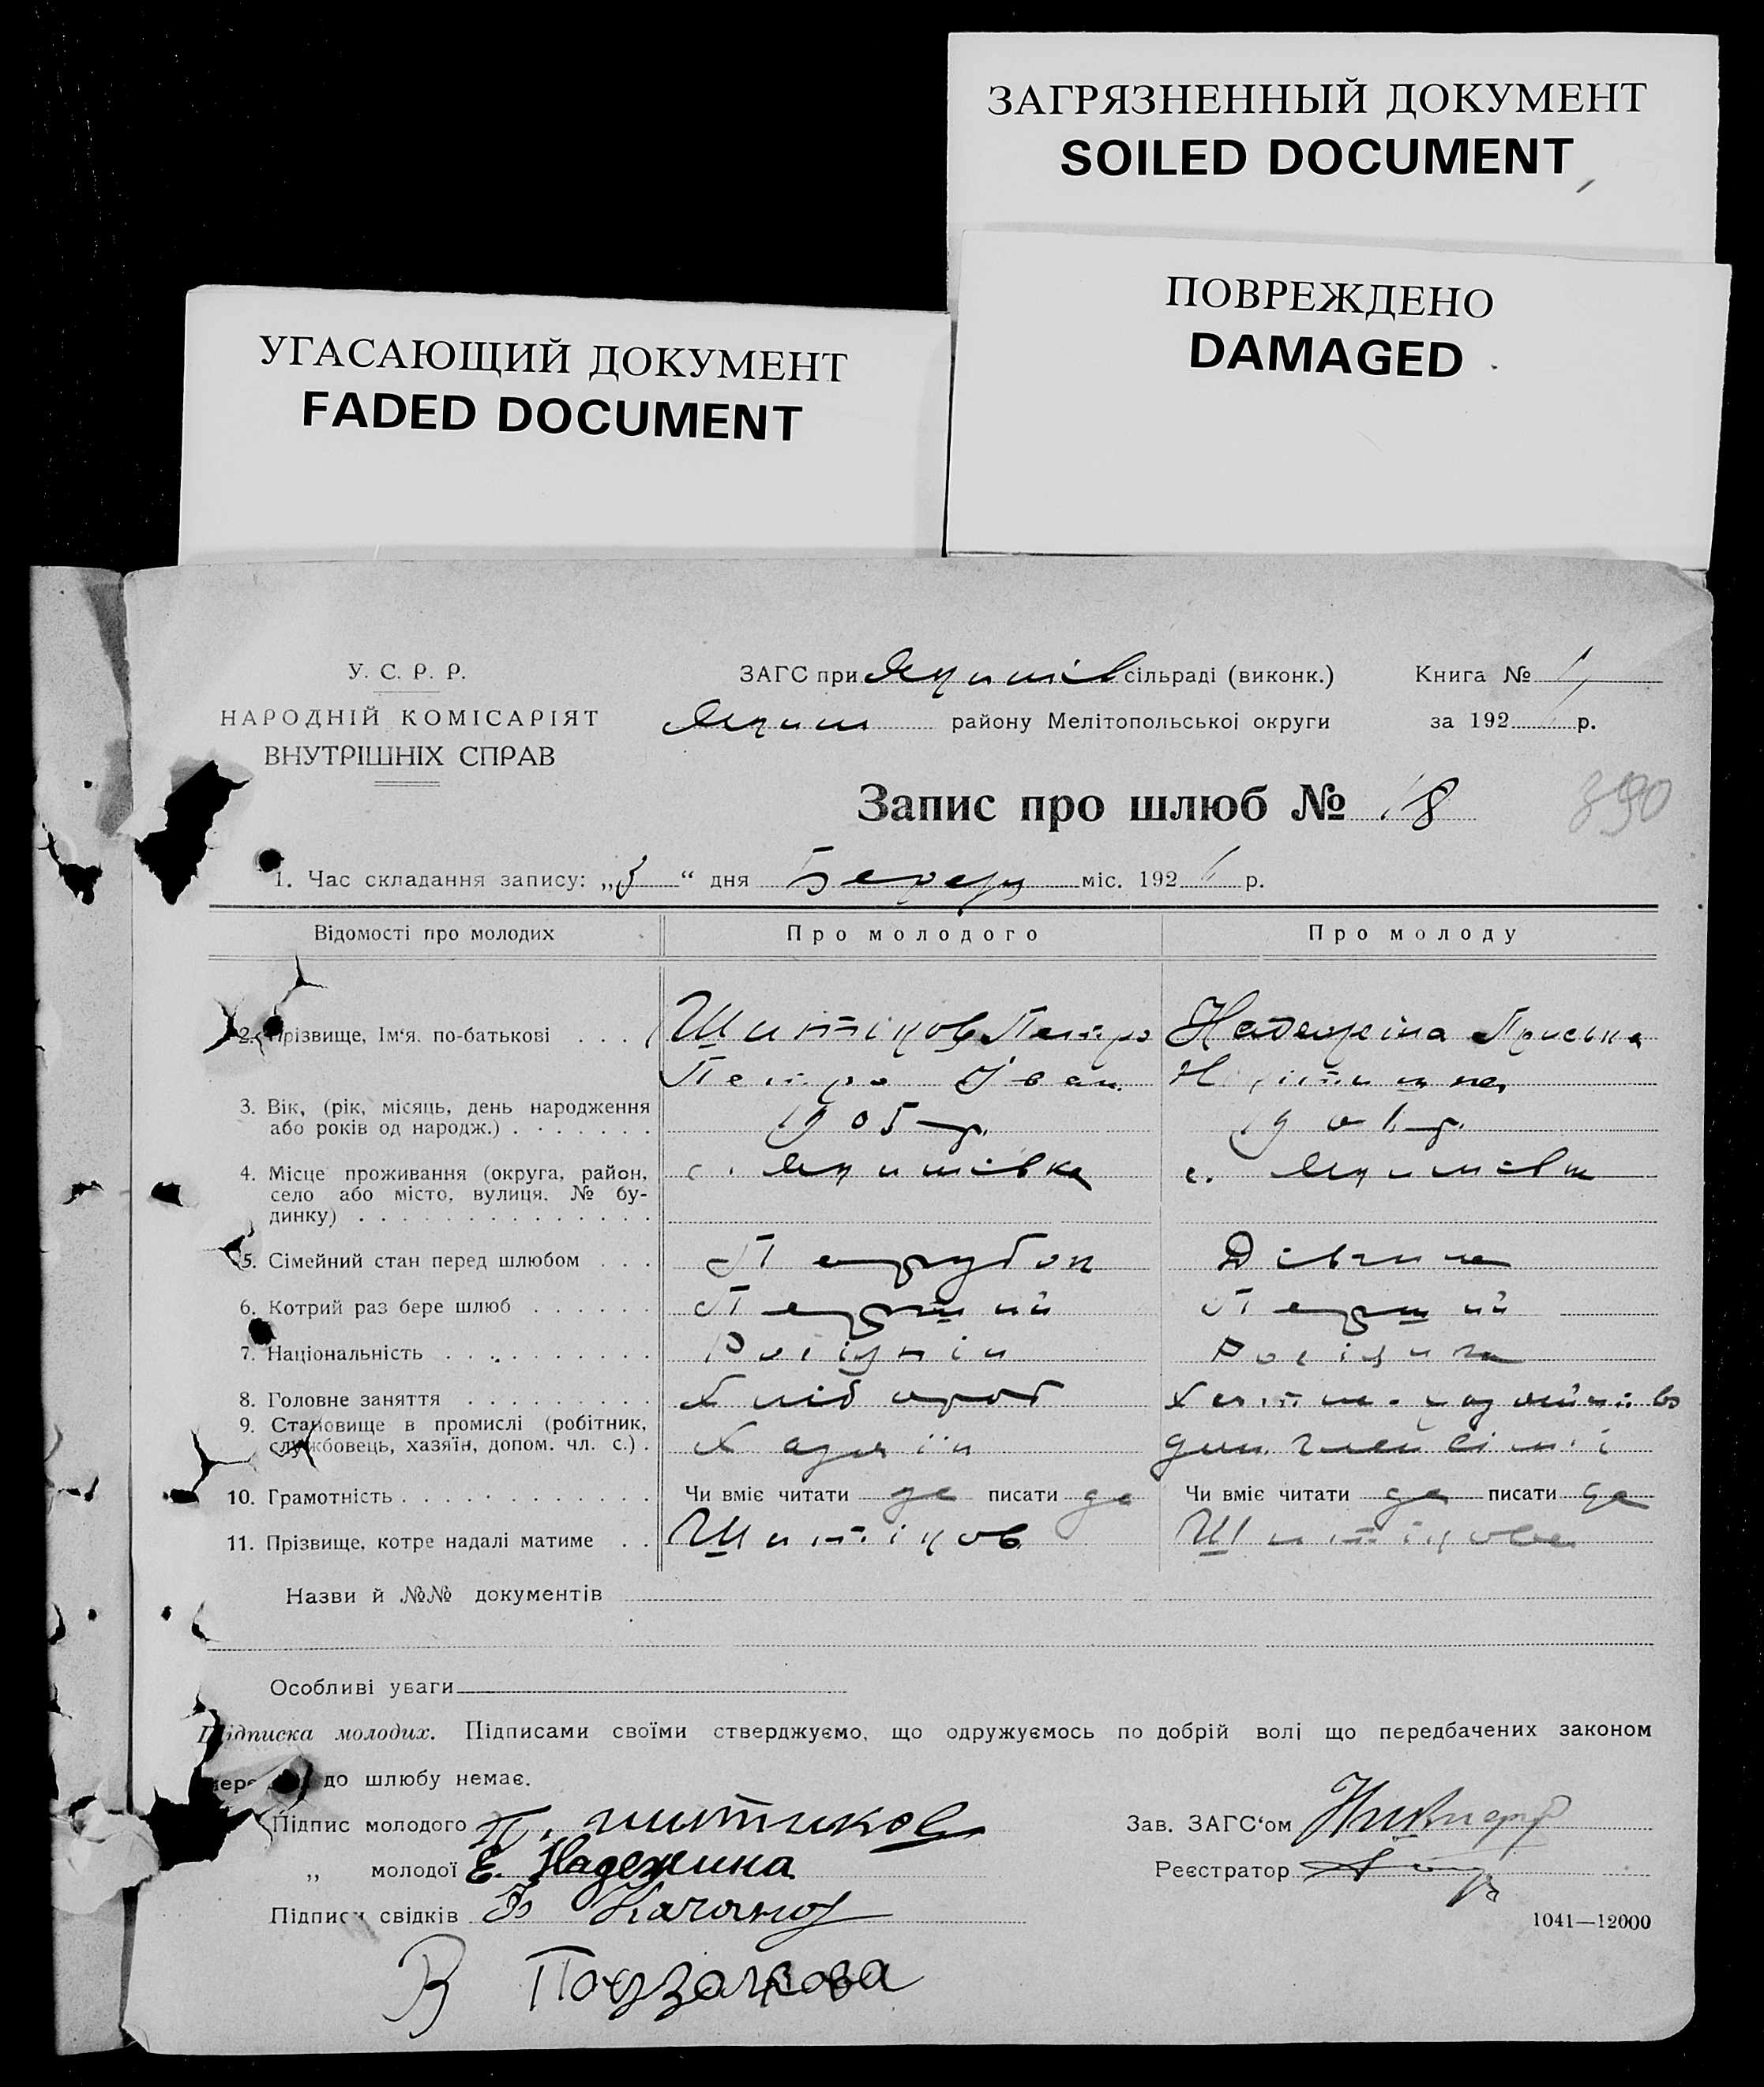 ЗАГРЯЗНЕННЫЙ ДОКУМЕНТ
SOILED DOCUMENT
ПОВРЕЖДЕНО
DAMAGED
УГАСАЮЩИЙ ДОКУМЕНТ
FADED DOCUMENT
У. С. Р. Р.
НАРОДНІЙ КОМІСАРІЯТ
ВНУТРІШНІХ СПРАВ
ЗАГС при Якимів сільраді (виконк.)
Яким району Мелітопольської округи
Книга №
за 192 р.
Запис про шлюб № 18
390
1. Час складання запису: „3“ дня Березн міс. 192 р.
Відомості про молодих Про молодого Про молоду
2. Прізвище, Ім‘я. по-батькові . . . Шитіков Петро Надежіна
Петро Іван.
3. Вік, (рік, місяць, день народження
або років од народж.) . . . . . . . 1905 р. 1901 р.
4. Місце проживання (округа, район, с. Якимівка с. Якимівка
село або місто, вулиця. № бу-
динку) . . . . . . . . . . . . . .
5. Сімейний стан перед шлюбом . . . Парубок Дівчина
6. Котрий раз бере шлюб . . . . . . Перший Перший
7. Національність . . . . . . . . . Росіянін Росіянка
8. Головне заняття . . . . . . . . . Хлібороб
9. Становище в промислі (робітник,
службовець, хазяїн, допом. чл. с.) . Хазяїн доп. член сім'ї
10. Грамотність . . . . . . . . . . . . Чи вміє читати да писати да Чи вміє читати да писати да
11. Прізвище, котре надалі матиме . . Шитіков Шитікова
Назви й №№ документів
Особливі уваги
Підписка молодих. Підписами своїми стверджуємо, що одружуємось по добрій волі що передбачених законом
пере до шлюбу немає.
Підпис молодого П. шитиков
„ молодої Е. Надежина
Підписи свідків Качано
В
Зав. ЗАГС‘ом
Реєстратор
1041—12000